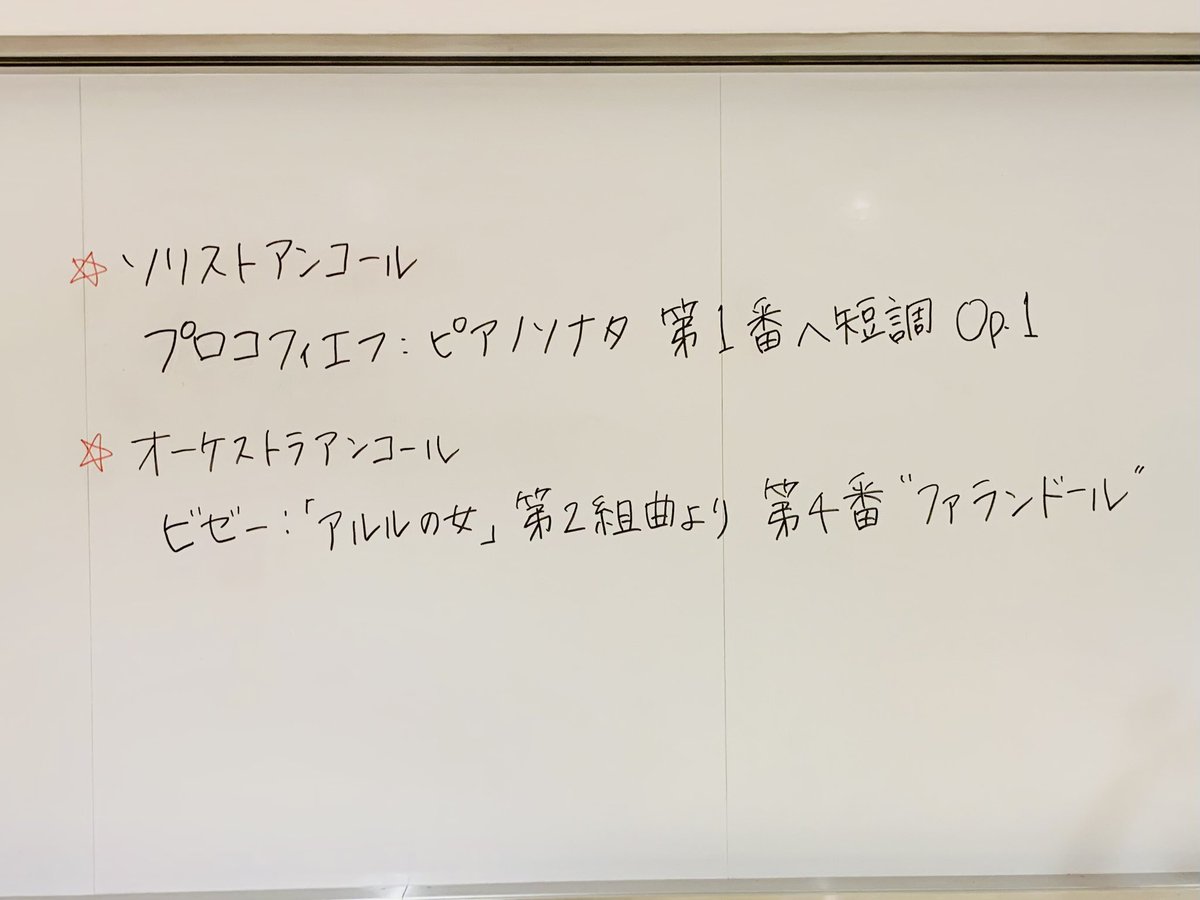 ☆ ソリストアンコール
プロコフィエフ:ピアノソナタ 第1番ヘ短調 Op.1
☆ オーケストラアンコール
ビゼー:「アルルの女」第2組曲より 第4番“ファランドール”